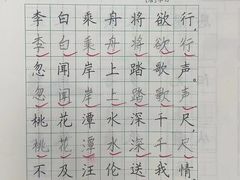 李白乘舟将欲行，
李白乘舟将欲行
忽闻岸上踏歌声。
忽闻岸上踏歌声
桃花潭水深千尺，
桃花潭水深千尺
不及汪伦送我情